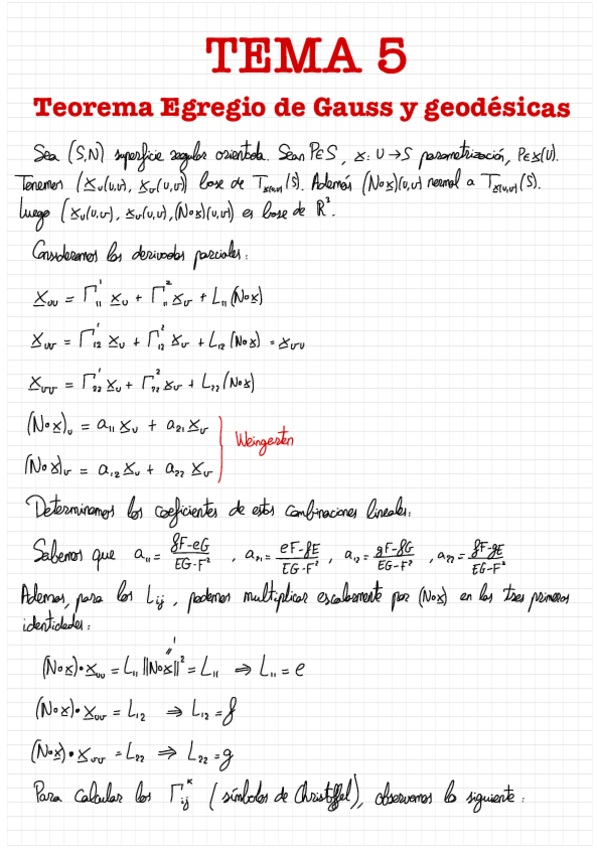 TEMA 5
Teorema Egregio de Gauss y geodésicas
Sea (S,N) superficie regular orientada. Sean P∈S, x: U→S parametrización, P∈x(U).
Tenemos (x_u(u,v), x_v(u,v)) base de T_x(u,v)(S). Además (N∘x)(u,v) normal a T_x(u,v)(S).
Luego (x_u(u,v), x_v(u,v), (N∘x)(u,v)) es base de R³.
Consideramos las derivadas parciales:
x_uu = Γ¹₁₁ x_u + Γ²₁₁ x_v + L₁₁(N∘x)
x_uv = Γ¹₁₂ x_u + Γ²₁₂ x_v + L₁₂(N∘x) = x_vu
x_vv = Γ¹₂₂ x_u + Γ²₂₂ x_v + L₂₂(N∘x)
(N∘x)_u = a₁₁ x_u + a₂₁ x_v
Weingarten
(N∘x)_v = a₁₂ x_u + a₂₂ x_v
Determinamos los coeficientes de estas combinaciones lineales:
Sabemos que a₁₁ = (fF-eG)/(EG-F²), a₂₁ = (eF-fE)/(EG-F²), a₁₂ = (gF-fG)/(EG-F²), a₂₂ = (fF-gE)/(EG-F²)
Ademas, para los Lij, podemos multiplicar escalarmente por (N∘x) en las tres primeras
identidades:
1
(N∘x)·x_uu = L₁₁ ||N∘x||² = L₁₁ ⇒ L₁₁ = e
(N∘x)·x_uv = L₁₂ ⇒ L₁₂ = f
(N∘x)·x_vv = L₂₂ ⇒ L₂₂ = g
Para calcular los Γᵏij (símbolos de Christoffel), observemos lo siguiente: